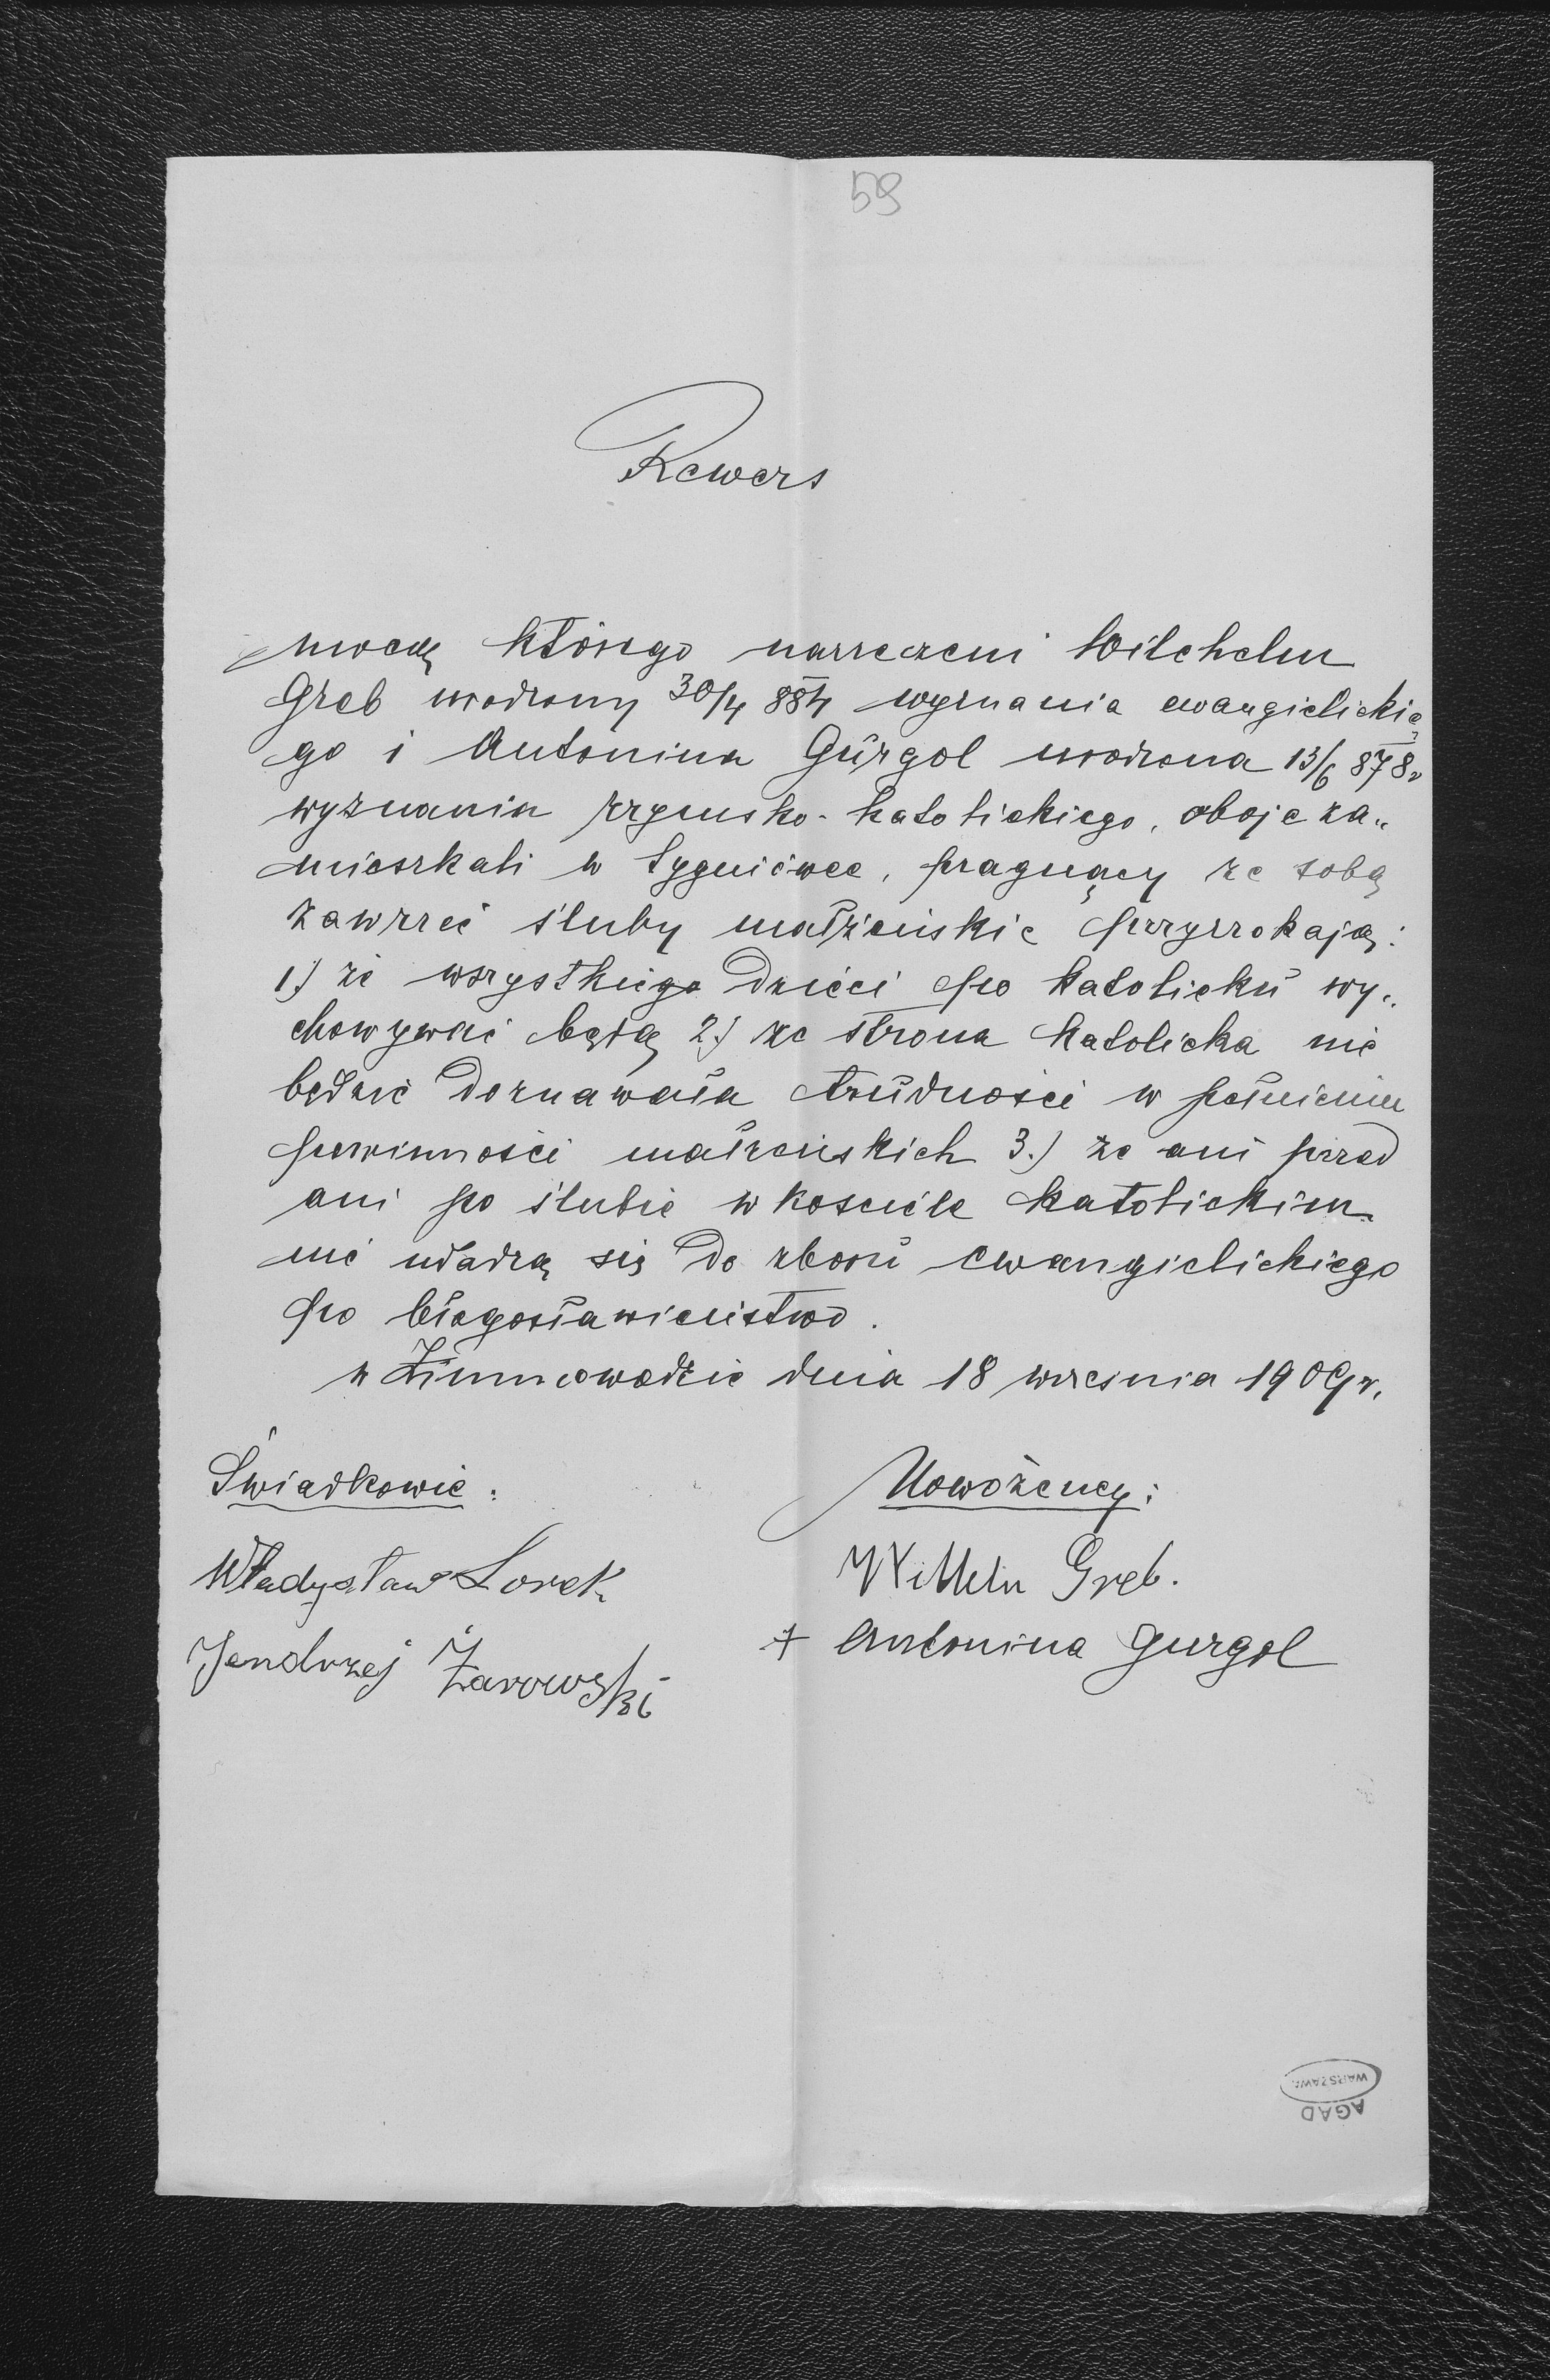 59
Rewers
mocą którego narzeczeni Wilchelm
Greb urodzony 30/4 884 wyznania ewangielickie
go i Antonina Gürgol urodzona 13/6 878
wyznania rzymsko-katolickiego, oboje za„
mieszkali w Sygniówce, pragnący ze sobą
zawrzeć śluby małżeńskie przyrzekają:
1.) że wszystkiego dzieci po katolickŭ wy„
chowywać będą 2.) że strona katolicka nie
będzie doznawała trŭdności w pełnieniu
powinności małżeńskich 3.) że ani przed
ani po ślubie w kosciele katolickim
nie udadzą się do zborŭ ewangielickiego
po błogosławieństwo.
w Zimnowodzie dnia 18 wrzesnia 1909 r.
Świadkowie:
Nowożency:
Władysław Lorek
Wilhelm Greb.
Jendrzej Żarowski
+ Antonina Gurgol
WARSZAWA
AGAD